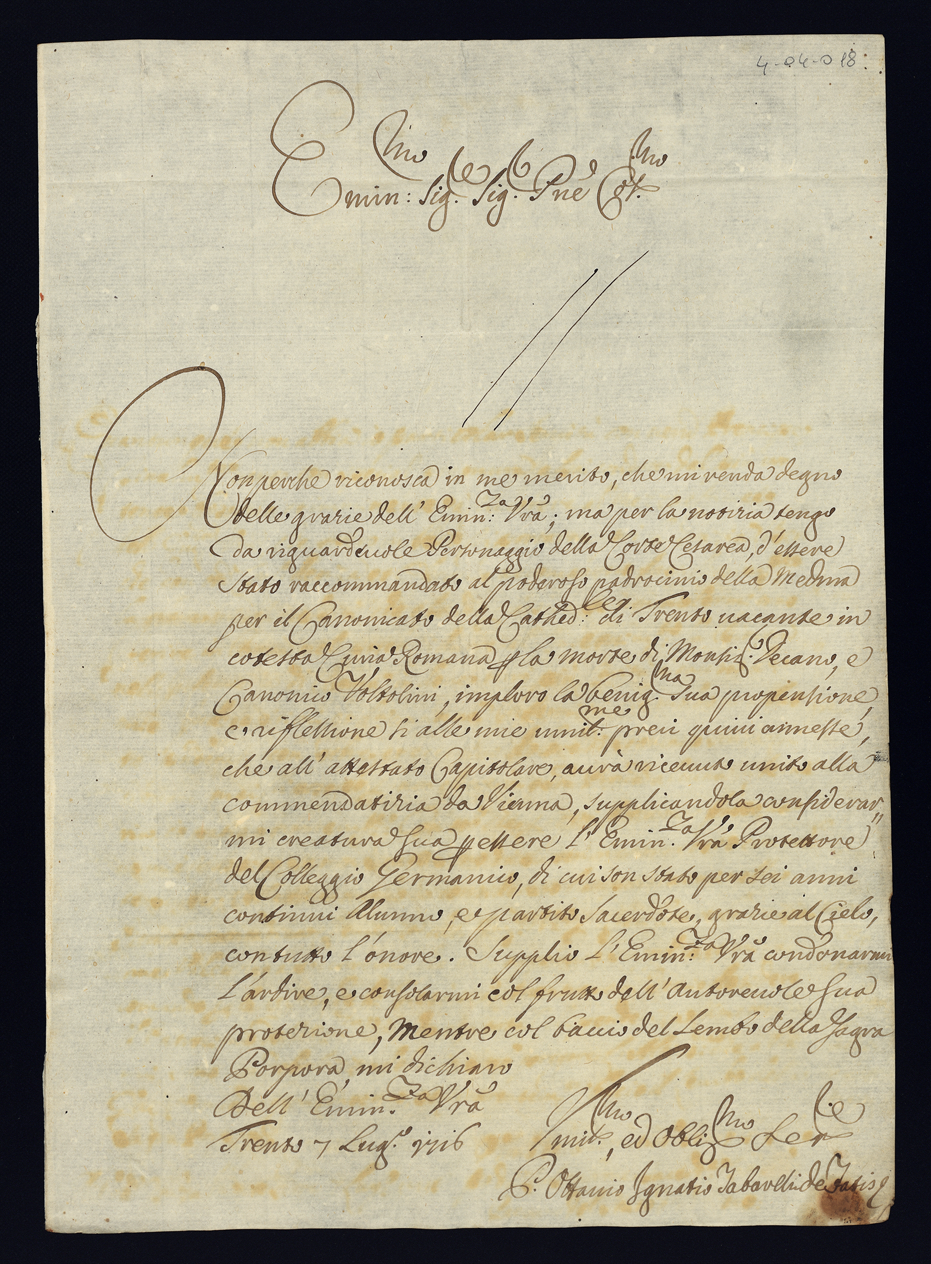 4-04-018
Emin:mo Sig.re Sig.r Pne Col.mo
Non perche riconosca in me merito, che mi renda degno
delle grazie dell' Emin:za Vrã; ma per la notizia tengo
da riguardeuole Personaggio della Corte Cesarea, d'essere
stato raccommandato al poderoso padrocinio della Medma
per il Canonicato della Cathed:le di Trento uacante in
cotesta Curia Romana p la morte di Monsig.r Decano, e
Canonico Voltolini, imploro la benig:ma Sua propensione,
e riflessione si alle mie umil:me preci quiui annesse,
che all' attestato Capitolare, aurà riceuuto unito alla
commendatizia da Vienna, supplicandola considerar
mi creatura Sua p essere l' Emin:za Vrã Protettore
del Colleggio Germanico, di cui son stato per sei anni
continui Alunno, e partito Sacerdote, grazie al Cielo,
con tutto l'onore. Supplio l' Emin:za Vrã condonarmi
l'ardire, e consolarmi col frutto dell' Autoreuole Sua
protezione, Mentre col baccio del Lembo della Sagra
Porpora mi dichiaro
Dell' Emin:za Vrã
Trento 7 Lug.o 1716 Umil:mo, ed Oblig:mo Ser.re
P. Ottauio Ignatio